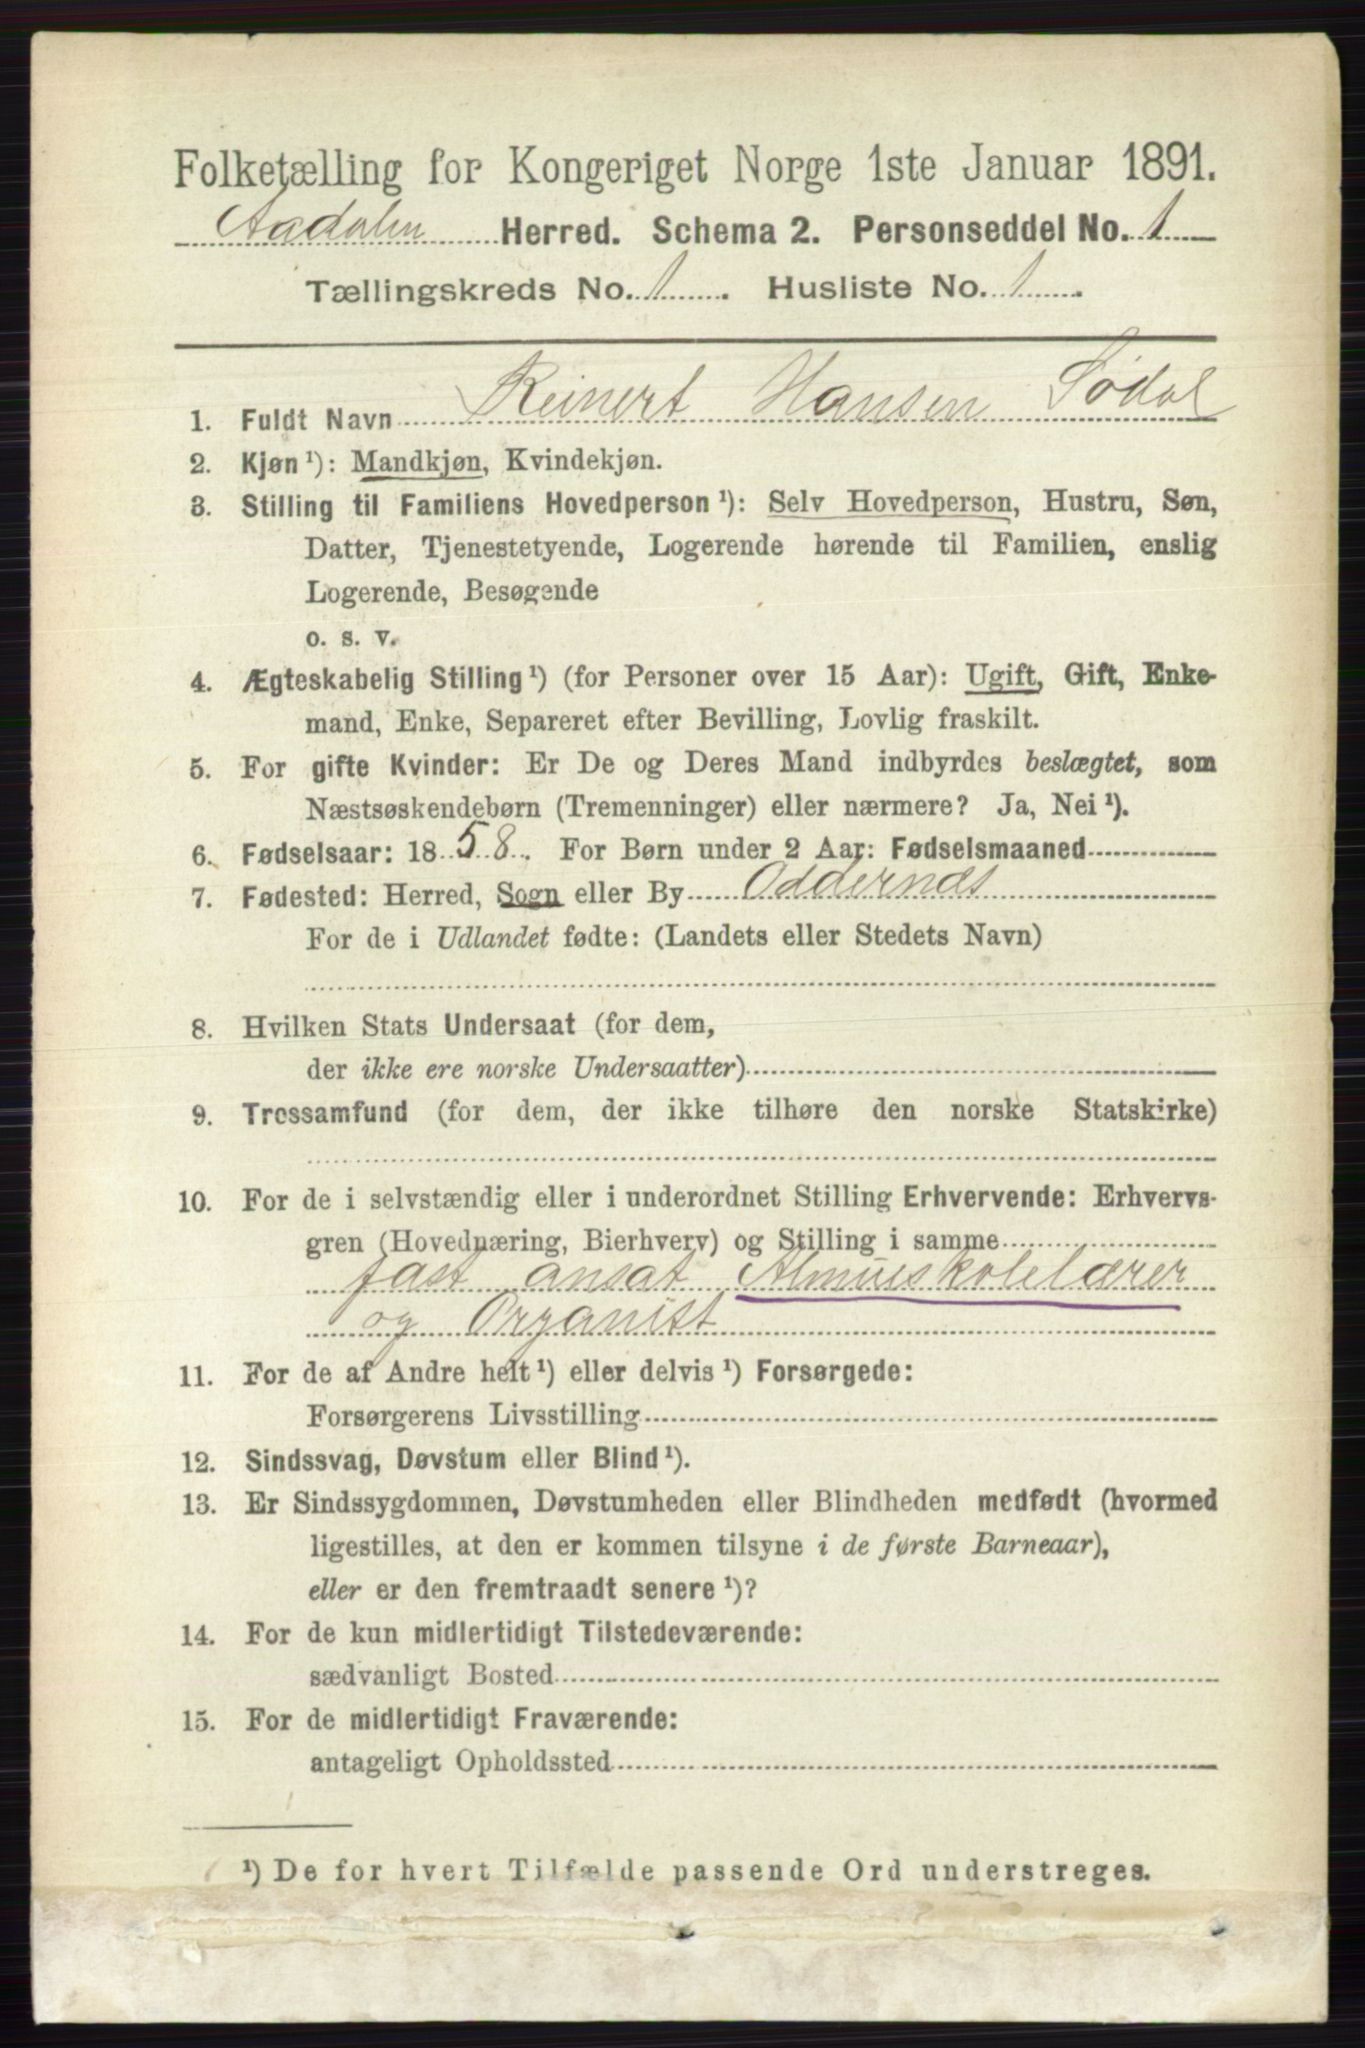 Folketælling for Kongeriget Norge 1ste Januar 1891.
Aadalen Herred. Schema 2. Personseddel No. 1
Tællingskreds No. 1. Husliste No. 1.
1. Fuldt Navn Reinert Hansen Sødal
2. Kjøn ¹): Mandkjøn, Kvindekjøn.
3. Stilling til Familiens Hovedperson ¹): Selv Hovedperson, Hustru, Søn,
Datter, Tjenestetyende, Logerende hørende til Familien, enslig
Logerende, Besøgende
o. s. v.
4. Ægteskabelig Stilling ¹) (for Personer over 15 Aar): Ugift, Gift, Enke-
mand, Enke, Separeret efter Bevilling, Lovlig fraskilt.
5. For gifte Kvinder: Er De og Deres Mand indbyrdes beslægtet, som
Næstsøskendebørn (Tremenninger) eller nærmere? Ja, Nei ¹).
6. Fødselsaar: 1858. For Børn under 2 Aar: Fødselsmaaned
7. Fødested: Herred, Sogn eller By Oddernæs
For de i Udlandet fødte: (Landets eller Stedets Navn)
8. Hvilken Stats Undersaat (for dem,
der ikke ere norske Undersaatter)
9. Trossamfund (for dem, der ikke tilhøre den norske Statskirke)
10. For de i selvstændig eller i underordnet Stilling Erhvervende: Erhvervs-
gren (Hovednæring, Bierhverv) og Stilling i samme
fast ansat Almueskolelærer
og Organist
11. For de af Andre helt ¹) eller delvis ¹) Forsørgede:
Forsørgerens Livsstilling
12. Sindssvag, Døvstum eller Blind ¹).
13. Er Sindssygdommen, Døvstumheden eller Blindheden medfødt (hvormed
ligestilles, at den er kommen tilsyne i de første Barneaar),
eller er den fremtraadt senere ¹)?
14. For de kun midlertidigt Tilstedeværende:
sædvanligt Bosted
15. For de midlertidigt Fraværende:
antageligt Opholdssted
¹) De for hvert Tilfælde passende Ord understreges.